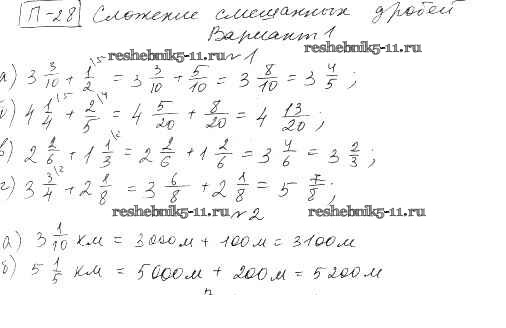 П-28 Сложение смешанных дробей
Вариант 1
reshebnik5-11.ru №1
а) 3 3/10 + 1/2 \5 = 3 3/10 + 5/10 = 3 8/10 = 3 4/5 ;
б) 4 1/4 \5 + 2/5 \4 = 4 5/20 + 8/20 = 4 13/20 ;
в) 2 2/6 + 1 1/3 \2 = 2 2/6 + 1 2/6 = 3 4/6 = 3 2/3 ;
г) 3 3/4 \2 + 2 1/8 = 3 6/8 + 2 1/8 = 5 7/8 ;
reshebnik5-11.ru №2 reshebnik5-11.ru
а) 3 1/10 км = 3000м + 100м = 3100м
б) 5 1/5 км = 5000м + 200м = 5200м